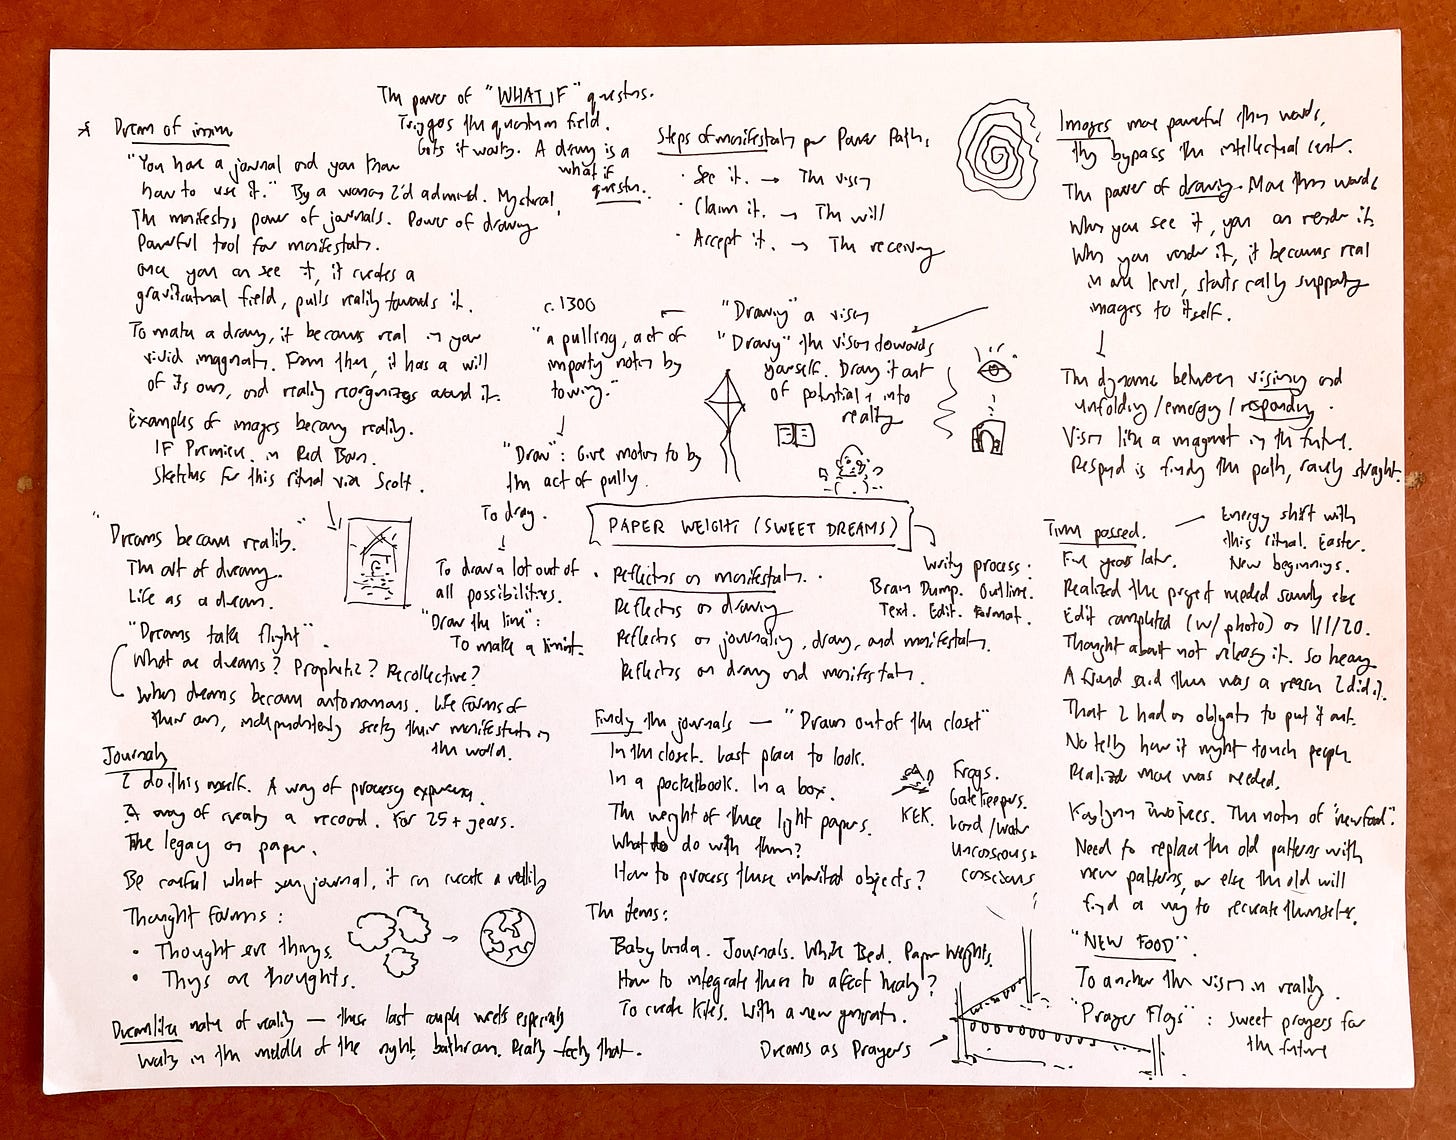 The power of "WHAT IF" questions.
Triggers the quantum field.
Gets it working. A drawing is a
what if
question.
* Dream of mine
"You have a journal and you know
how to use it." By a woman I'd admired. Mystical.
The manifesting power of journals. Power of drawing
Powerful tool for manifestation.
Once you can see it, it creates a
gravitational field, pulls reality towards it.
To make a drawing, it becomes real in your
vivid imagination. From there, it has a will
of its own, and reality reorganizes around it.
Examples of images becoming reality.
IF Premiere in Red Barn.
Sketches for this ritual via Scott.
"Dreams become reality."
The art of dreaming.
Life as a dream.
"Dreams take flight".
What are dreams? Prophetic? Recollective?
When dreams become autonomous. Life forms of
their own, independently seeking their manifestation in
the world.
Journals
I do this myself. A way of processing experience.
A way of creating a record. For 25+ years.
The legacy on paper.
Be careful what you journal, it can create a reality
Thought Forms:
• Thought are things.
• Things are thoughts.
Dreamlike nature of reality — these last couple weeks especially
Waking in the middle of the night, bathroom. Really feeling that.
Steps of manifestation per Power Path.
• See it. → The vision
• Claim it. → The will
• Accept it. → The receiving
c.1300
"a pulling, act of
imparting motion by
towing."
"Draw": Give motion to by
the act of pulling.
To drag.
To draw a lot out of
all possibilities.
"Draw the line":
To make a limit.
"Drawing" a vision
"Drawing" the vision towards
yourself. Drawing it out
of potential & into
reality
PAPER WEIGHT (SWEET DREAMS)
Writing process:
Brain Dump. Outline.
Text. Edit. Format.
• Reflections on manifestation.
Reflections on drawing
Reflections on journaling, drawing, and manifestation.
Reflections on drawing and manifestation.
Finding the journals — "Drawn out of the closet"
In the closet. Last place to look.
In a pocketbook. In a box.
The weight of these light papers.
What to do with them?
How to process these inherited objects?
KEK.
Frogs.
Gatekeepers.
Land/water
Unconscious &
conscious
The items:
Baby Linda. Journals. White Bed. Paper Weights.
How to integrate them to affect healing?
To create kites. With a new generation.
Dreams as Prayers
Images more powerful than words,
they bypass the intellectual center.
The power of drawing. More than words
When you see it, you can render it.
When you render it, it becomes real
in one level, starts calling supporting
images to itself.
The dynamic between visioning and
unfolding/emerging/responding.
Vision like a magnet in the future.
Respond is finding the path, rarely straight.
Time passed.
Energy shift with
this ritual. Easter.
New beginnings.
Five years later.
Realized the project needed something else
Edit completed (w/ photo) on 1/1/20.
Thought about not releasing it. So heavy
A friend said there was a reason I did it.
That I had an obligation to put it out.
No telling how it might touch people
Realized more was needed.
Kaylynn TwoTrees. The notion of "new food".
Need to replace the old patterns with
new patterns, or else the old will
find a way to recreate themselves.
"NEW FOOD".
To anchor the vision in reality.
"Prayer Flags": Sweet prayers for
the future